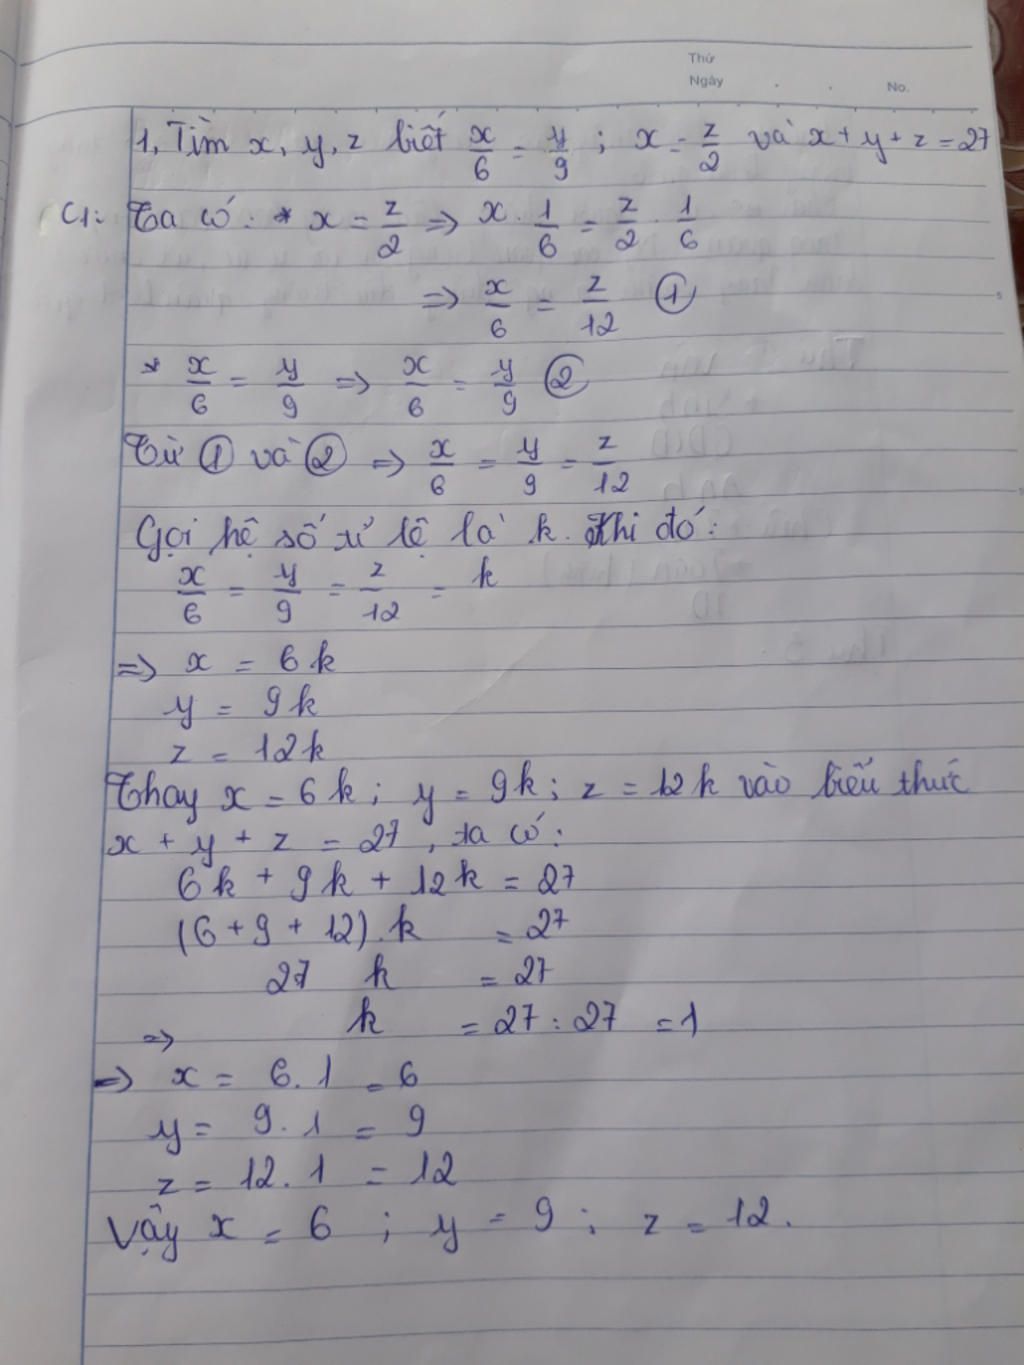 Thứ
Ngày . . No.
1, Tìm x, y, z biết x/6 = y/9 ; x = z/2 và x + y + z = 27
C1: Ta có: * x = z/2 => x . 1/6 = z/2 . 1/6
=> x/6 = z/12 ①
* x/6 = y/9 => x/6 = y/9 ②
Từ ① và ② => x/6 = y/9 = z/12
Gọi hệ số tỉ lệ là k. Khi đó:
x/6 = y/9 = z/12 = k
=> x = 6k
y = 9k
z = 12k
Thay x = 6k ; y = 9k ; z = 12k vào biểu thức
x + y + z = 27 , ta có:
6k + 9k + 12k = 27
(6 + 9 + 12) . k = 27
27 k = 27
=> k = 27 : 27 = 1
=> x = 6 . 1 = 6
y = 9 . 1 = 9
z = 12 . 1 = 12
Vậy x = 6 ; y = 9 ; z = 12.